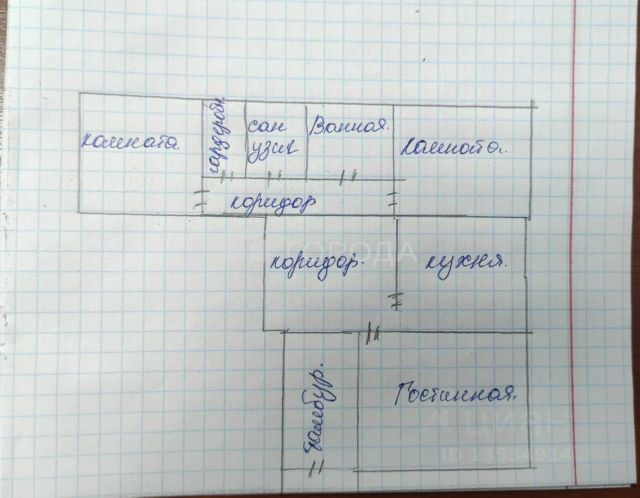 комната
гардеробн
сан
узик
Ванная.
комната.
коридор
коридор.
кухня.
тамбур.
Гостинная.
ID 135344914